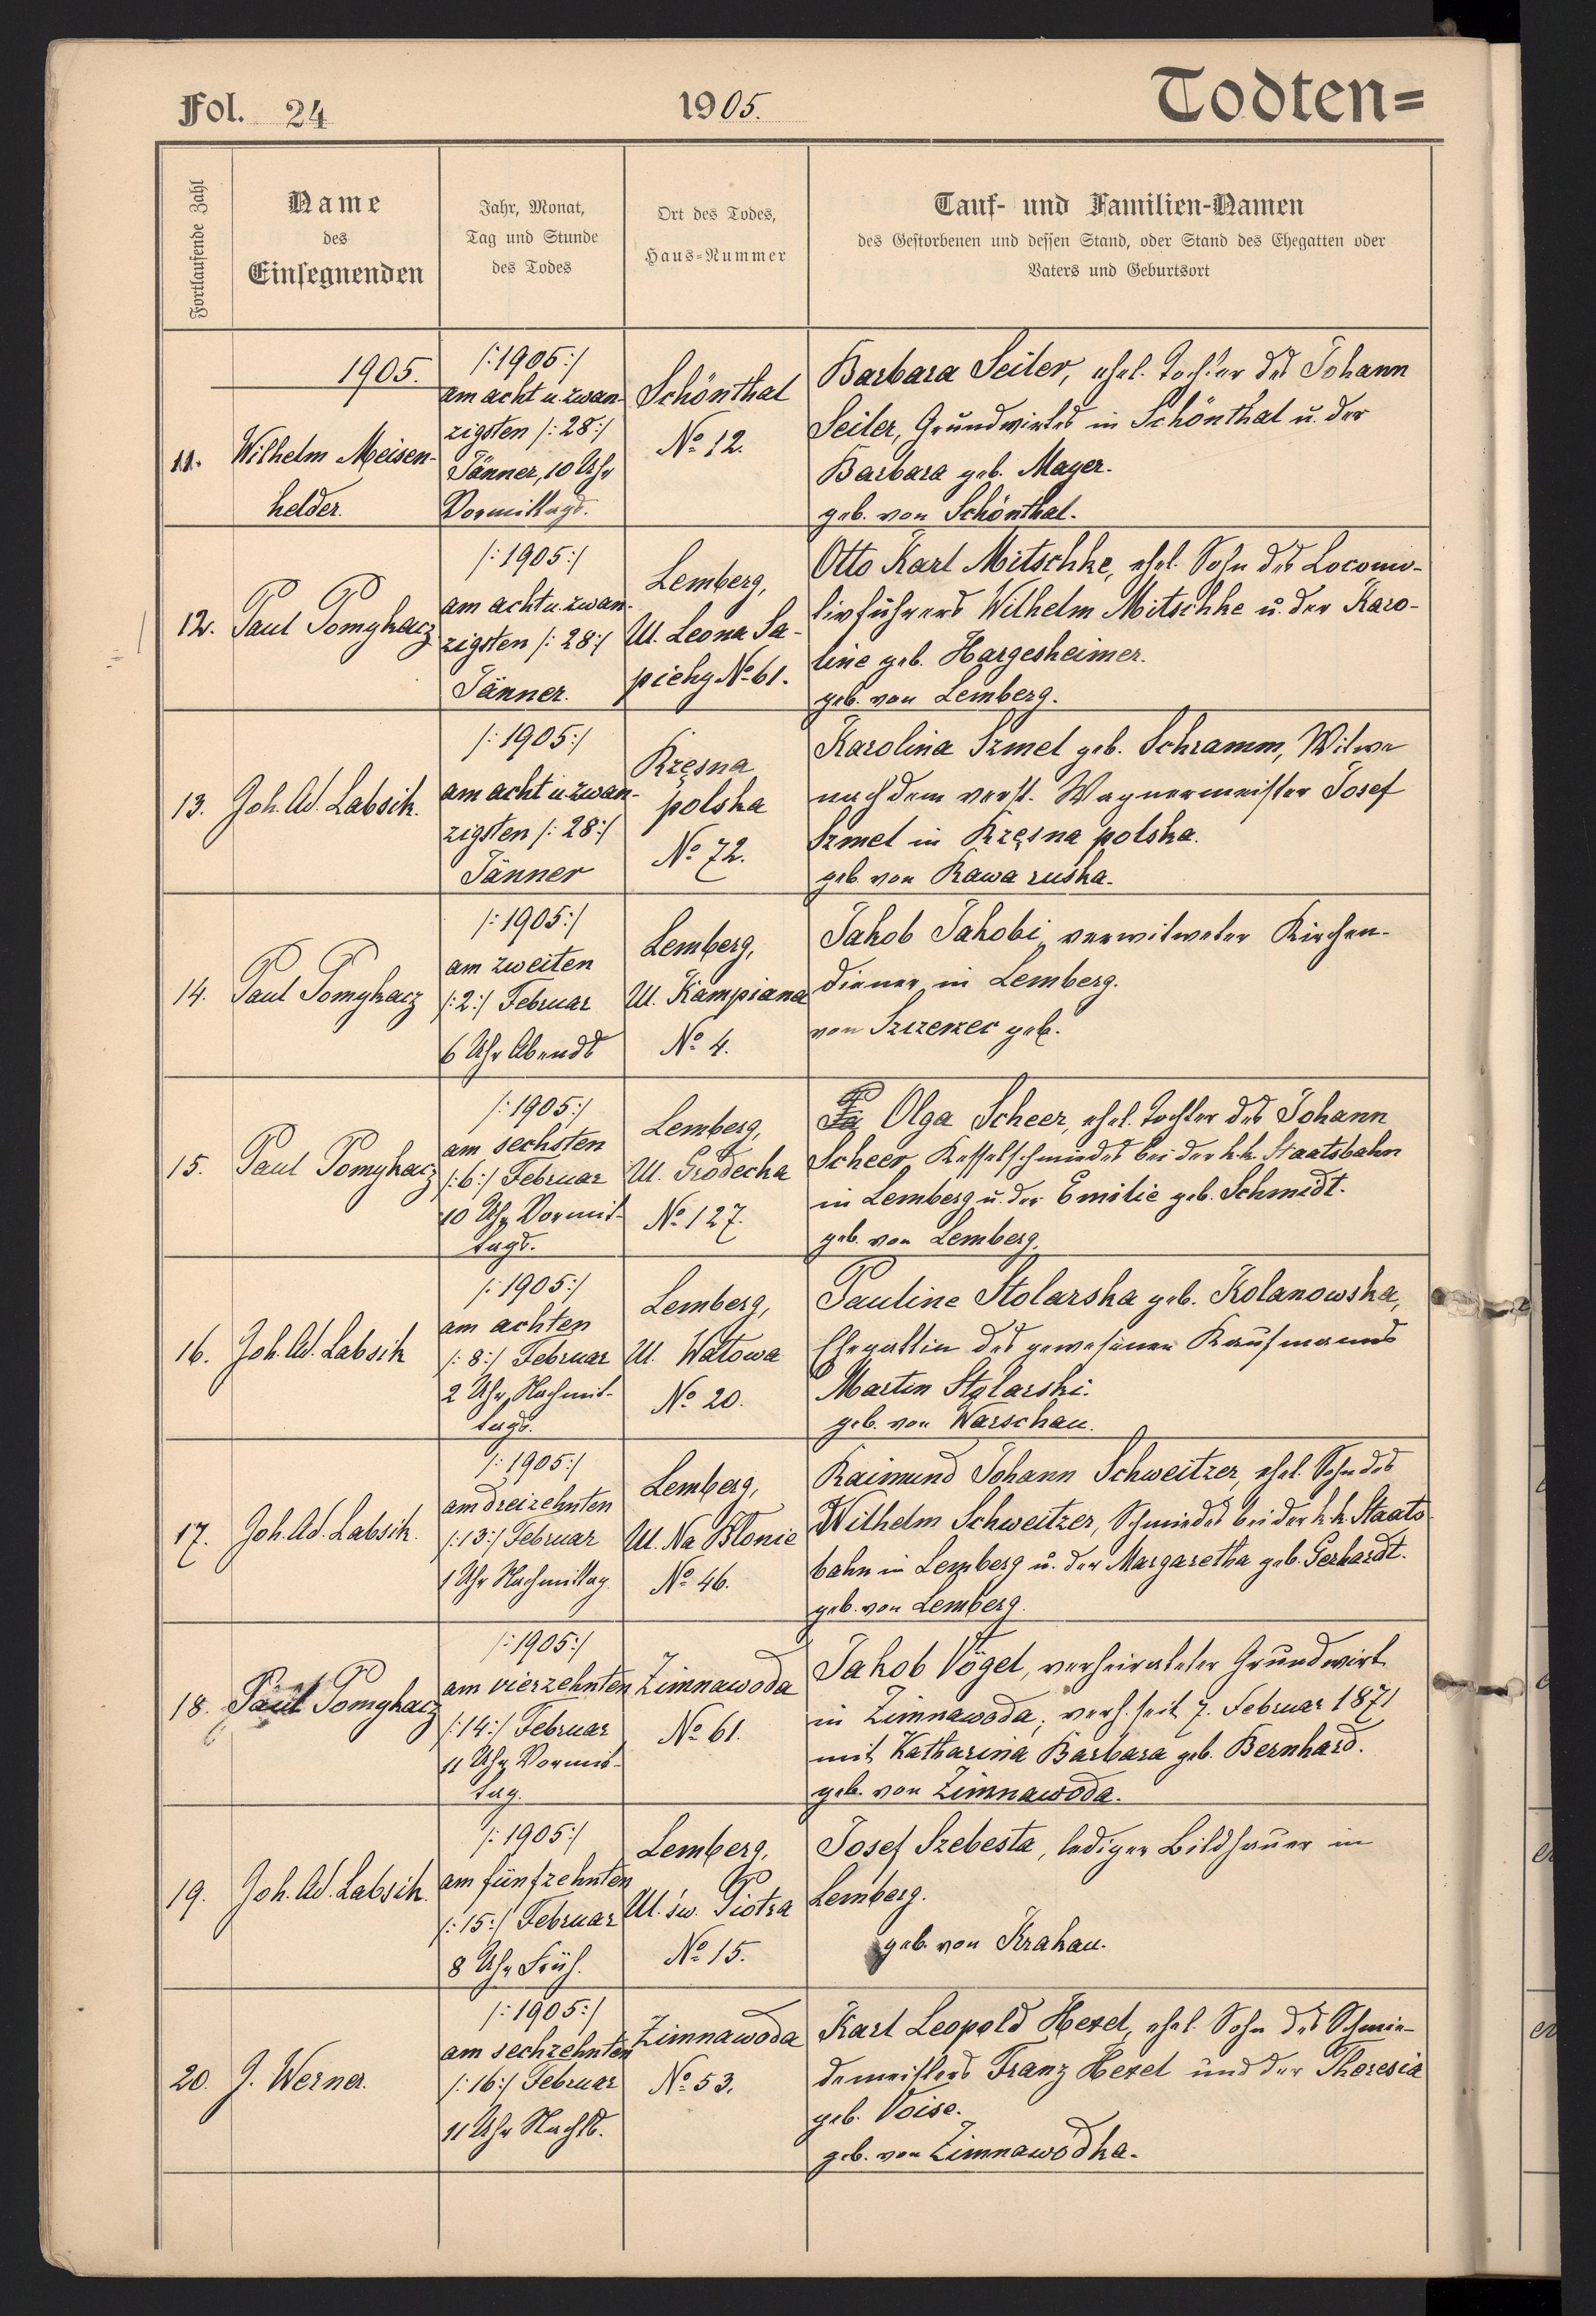 Fol. 24 1905. Todten=
Fortlaufende Zahl
Name
des
Einsegnenden
Jahr, Monat,
Tag und Stunde
des Todes
Ort des Todes,
Haus-Nummer
Tauf- und Familien-Namen
des Gestorbenen und dessen Stand, oder Stand des Ehegatten oder
Vaters und Geburtsort
1905.
11.
Wilhelm Meisen-
helder.
/:1905:/
am acht u. zwan-
zigsten /:28:/
Jänner, 10 Uhr
Vormittags.
Schönthal
No 12.
Barbara Seiler, ehel. Tochter des Johann
Seiler, Grundwirtes in Schönthal u. der
Barbara geb. Mayer.
geb. von Schönthal.
12.
Paul Pomykacz
/:1905:/
am acht u. zwan-
zigsten /:28:/
Jänner.
Lemberg,
Ul. Leona Sa-
piehy No 61.
Otto Karl Mitschke, ehel. Sohn des Locomo-
tivführers Wilhelm Mitschke u. der Karo-
line geb. Hargesheimer.
geb. von Lemberg.
13.
Joh. Ad. Labsik.
/:1905:/
am acht u. zwan-
zigsten /:28:/
Jänner
Krzęsna
polska
No 72.
Karolina Szmel geb. Schramm, Witwe
nach dem verst. Wagnermeister Josef
Szmel in Krzęsna polska.
geb. von Rawa ruska.
14.
Paul Pomykacz
/:1905:/
am zweiten
/:2:/ Februar
6 Uhr Abends
Lemberg,
Ul. Kampiana
No 4.
Jakob Jakobi, verwitweter Kirchen-
diener in Lemberg.
von Szczerzec geb.
15.
Paul Pomykacz
/:1905:/
am sechsten
/:6:/ Februar
10 Uhr Vormit-
tags.
Lemberg,
Ul. Grodecka
No 127.
Olga Scheer, ehel. Tochter des Johann
Scheer, Kesselschmiedes bei der k.k. Staatsbahn
in Lemberg u. der Emilie geb. Schmidt.
geb. von Lemberg.
16.
Joh. Ad. Labsik
/:1905:/
am achten
/:8:/ Februar
2 Uhr Nachmit-
tags.
Lemberg,
Ul. Watowa
No 20.
Pauline Stolarska geb. Kolanowska,
Ehegattin des gewesenen Kaufmanns
Martin Stolarski.
geb. von Warschau.
17.
Joh. Ad. Labsik.
/:1905:/
am dreizehnten
/:13:/ Februar
1 Uhr Nachmittag
Lemberg,
Ul. Na Błonie
No 46.
Raimund Johann Schweitzer, ehel. Sohn des
Wilhelm Schweitzer, Schmiedes bei der k.k. Staats-
bahn in Lemberg u. der Margaretha geb. Gerhardt.
geb. von Lemberg.
18.
Paul Pomykacz
/:1905:/
am vierzehnten
/:14:/ Februar
11 Uhr Vormit-
tag.
Zimnawoda
No 61.
Jakob Vögel, verheirateter Grundwirt
in Zimnawoda, verh. seit 7. Februar 1871
mit Katharina Barbara geb. Bernhard.
geb. von Zimnawoda.
19.
Joh. Ad. Labsik.
/:1905:/
am fünfzehnten
/:15:/ Februar
8 Uhr Früh.
Lemberg,
Ul. św. Piotra
No 15.
Josef Szebesta, lediger Bildhauer in
Lemberg.
geb. von Krakau.
20.
J. Werner.
/:1905:/
am sechzehnten
/:16:/ Februar
11 Uhr Nachts.
Zimnawoda
No 53.
Karl Leopold Hexel, ehel. Sohn des Schmie-
demeisters Franz Hexel und der Theresia
geb. Voise.
geb. von Zimnawódka.